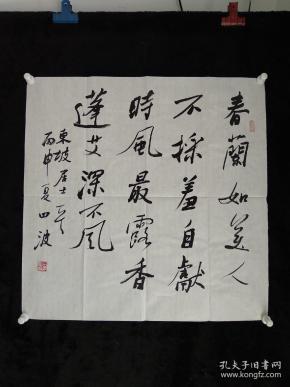 春蘭如美人
不採羞自獻
時風最露香
蓬艾深不風
東坡居士
丙申夏四波
孔夫子旧书网